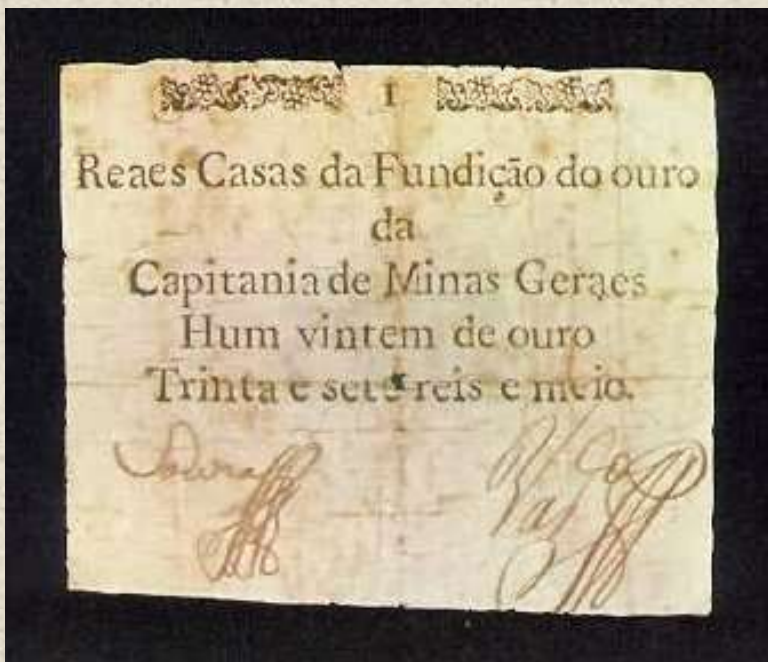 I
Reaes Casas da Fundição do ouro
da
Capitania de Minas Geraes
Hum vintem de ouro
Trinta e sete reis e meio.